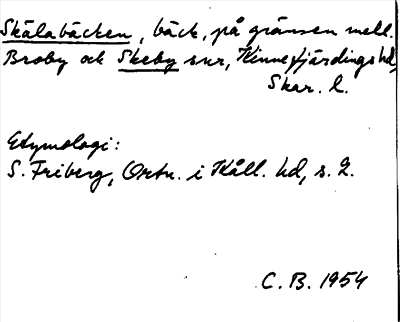 Skälabäcken, bäck, på gränsen mell.
Broby och Skeby snr, Kinnefjärdings hd,
Skar. l.
Etymologi:
S. Friberg, Ortn. i Kåll. hd, s. 2.
C. B. 1954